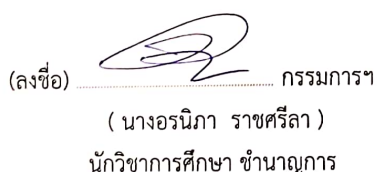 (ลงชื่อ) ........................................ กรรมการฯ
( นางอรนิภา ราชศรีลา )
นักวิชาการศึกษา ชำนาญการ